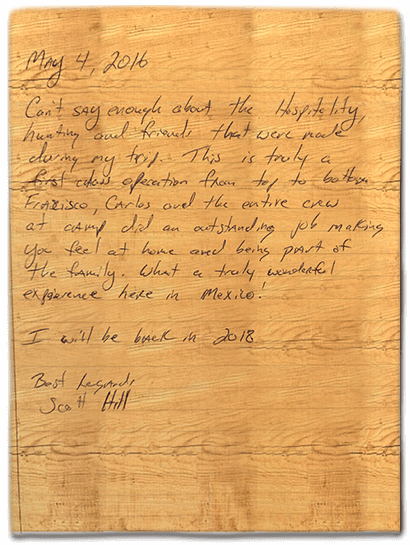 May 4, 2016
Can't say enough about the Hospitality,
hunting and friends that were made
during my trip. This is truly a
first class operation from top to bottom
Francisco, Carlos and the entire crew
at camp did an outstanding job making
you feel at home and being part of
the family. What a truly wonderful
experience here in Mexico!
I will be back in 2018
Best Regards,
Scott Hill